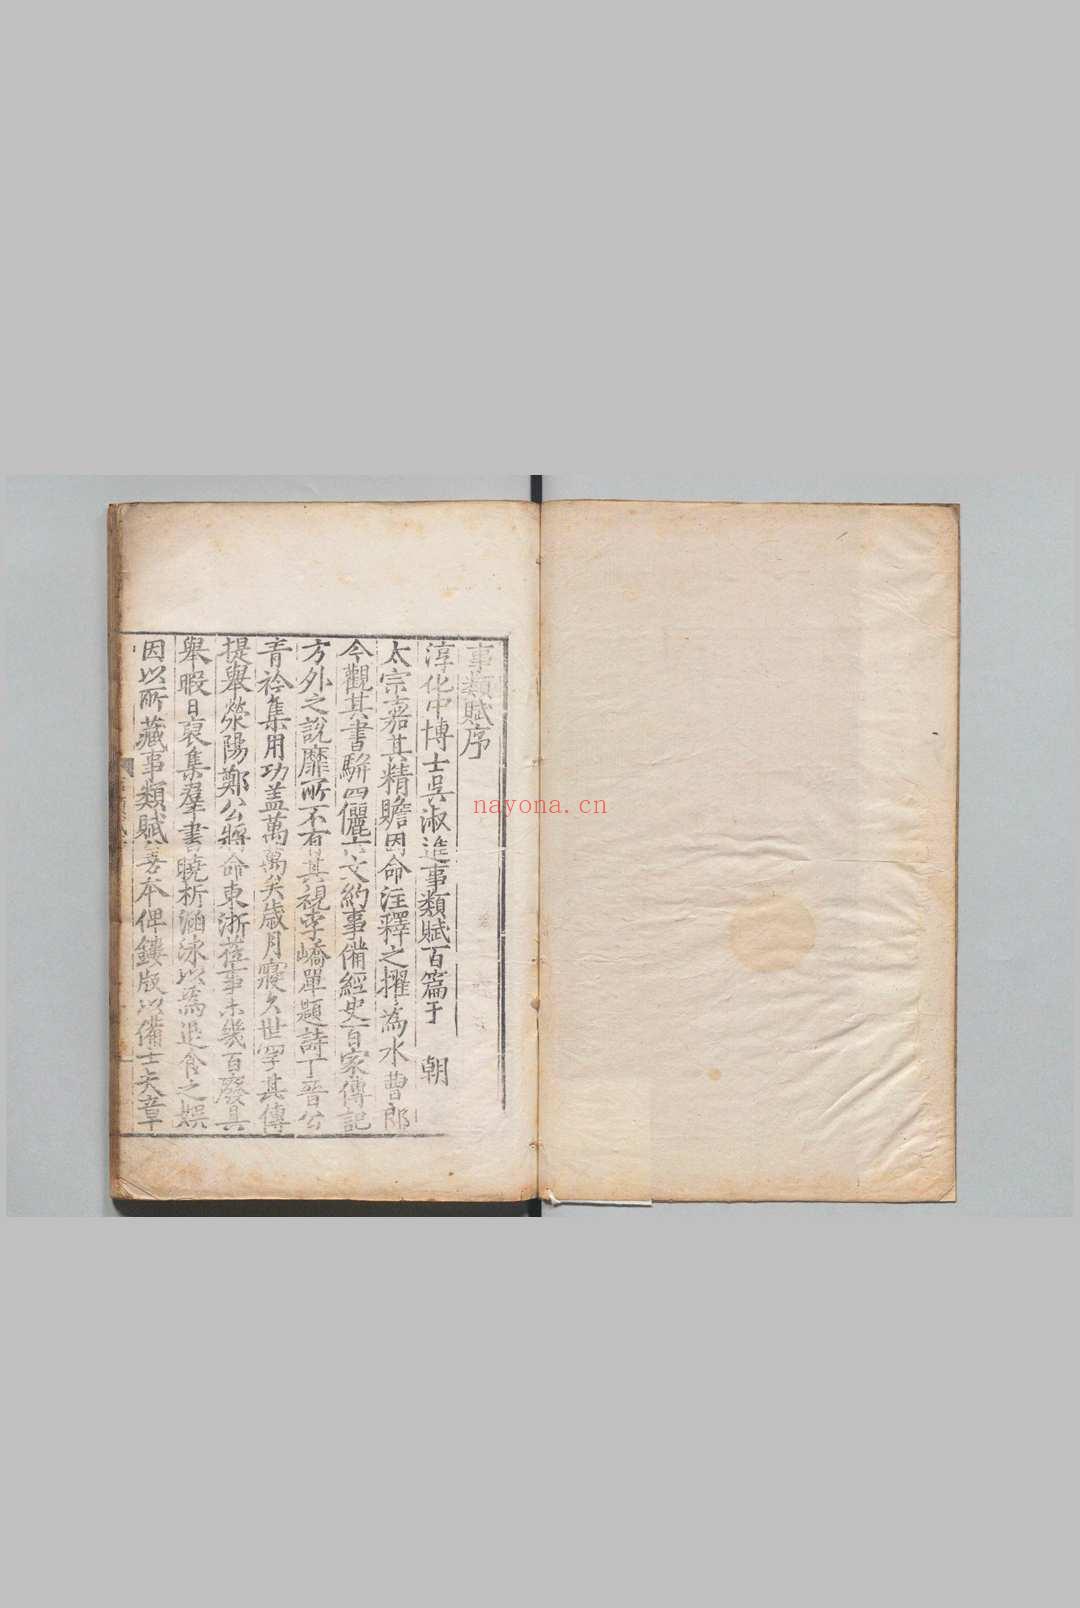 事類賦序
淳化中博士吳淑進事類賦百篇于 朝
太宗嘉其精贍因命注釋之擢為水曹郎
今觀其書駢四儷六文約事備經史百家傳記
方外之說靡所不有其視李嶠單題詩丁晉公
青衿集用功蓋萬萬矣歲月寖久世罕其傳
提舉滎陽鄭公將命東浙蒞事未幾百廢具
舉暇日裒集羣書曉析涵泳以為退食之娛
因以所藏事類賦善本俾鏤版以備士夫章
nayona.cn